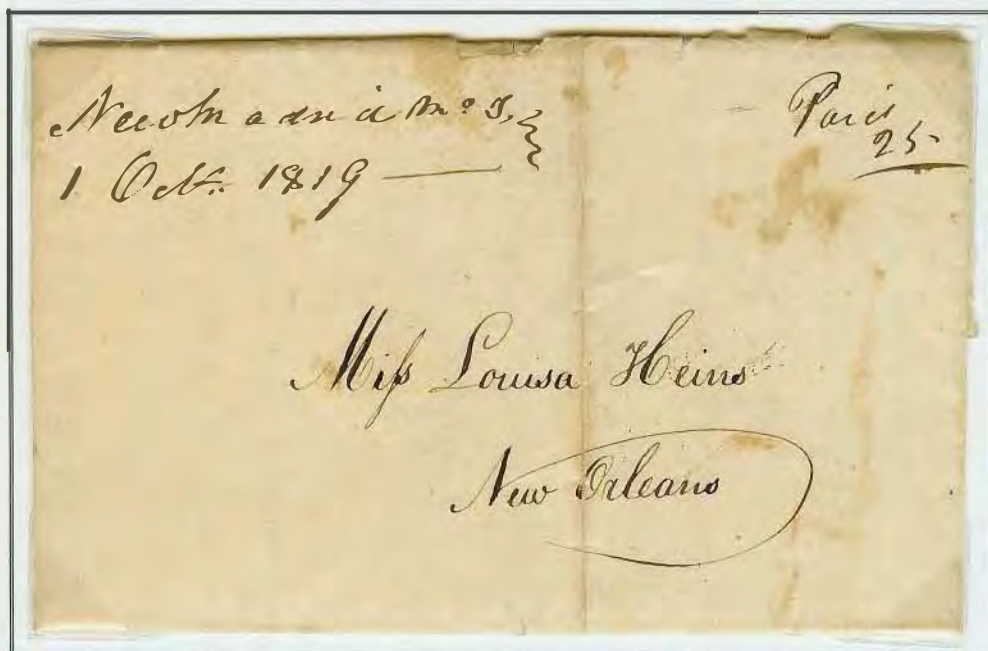 Newmadrid Mo T,
1 Oct. 1819
Paid
25
Miss Louisa Heins
New Orleans